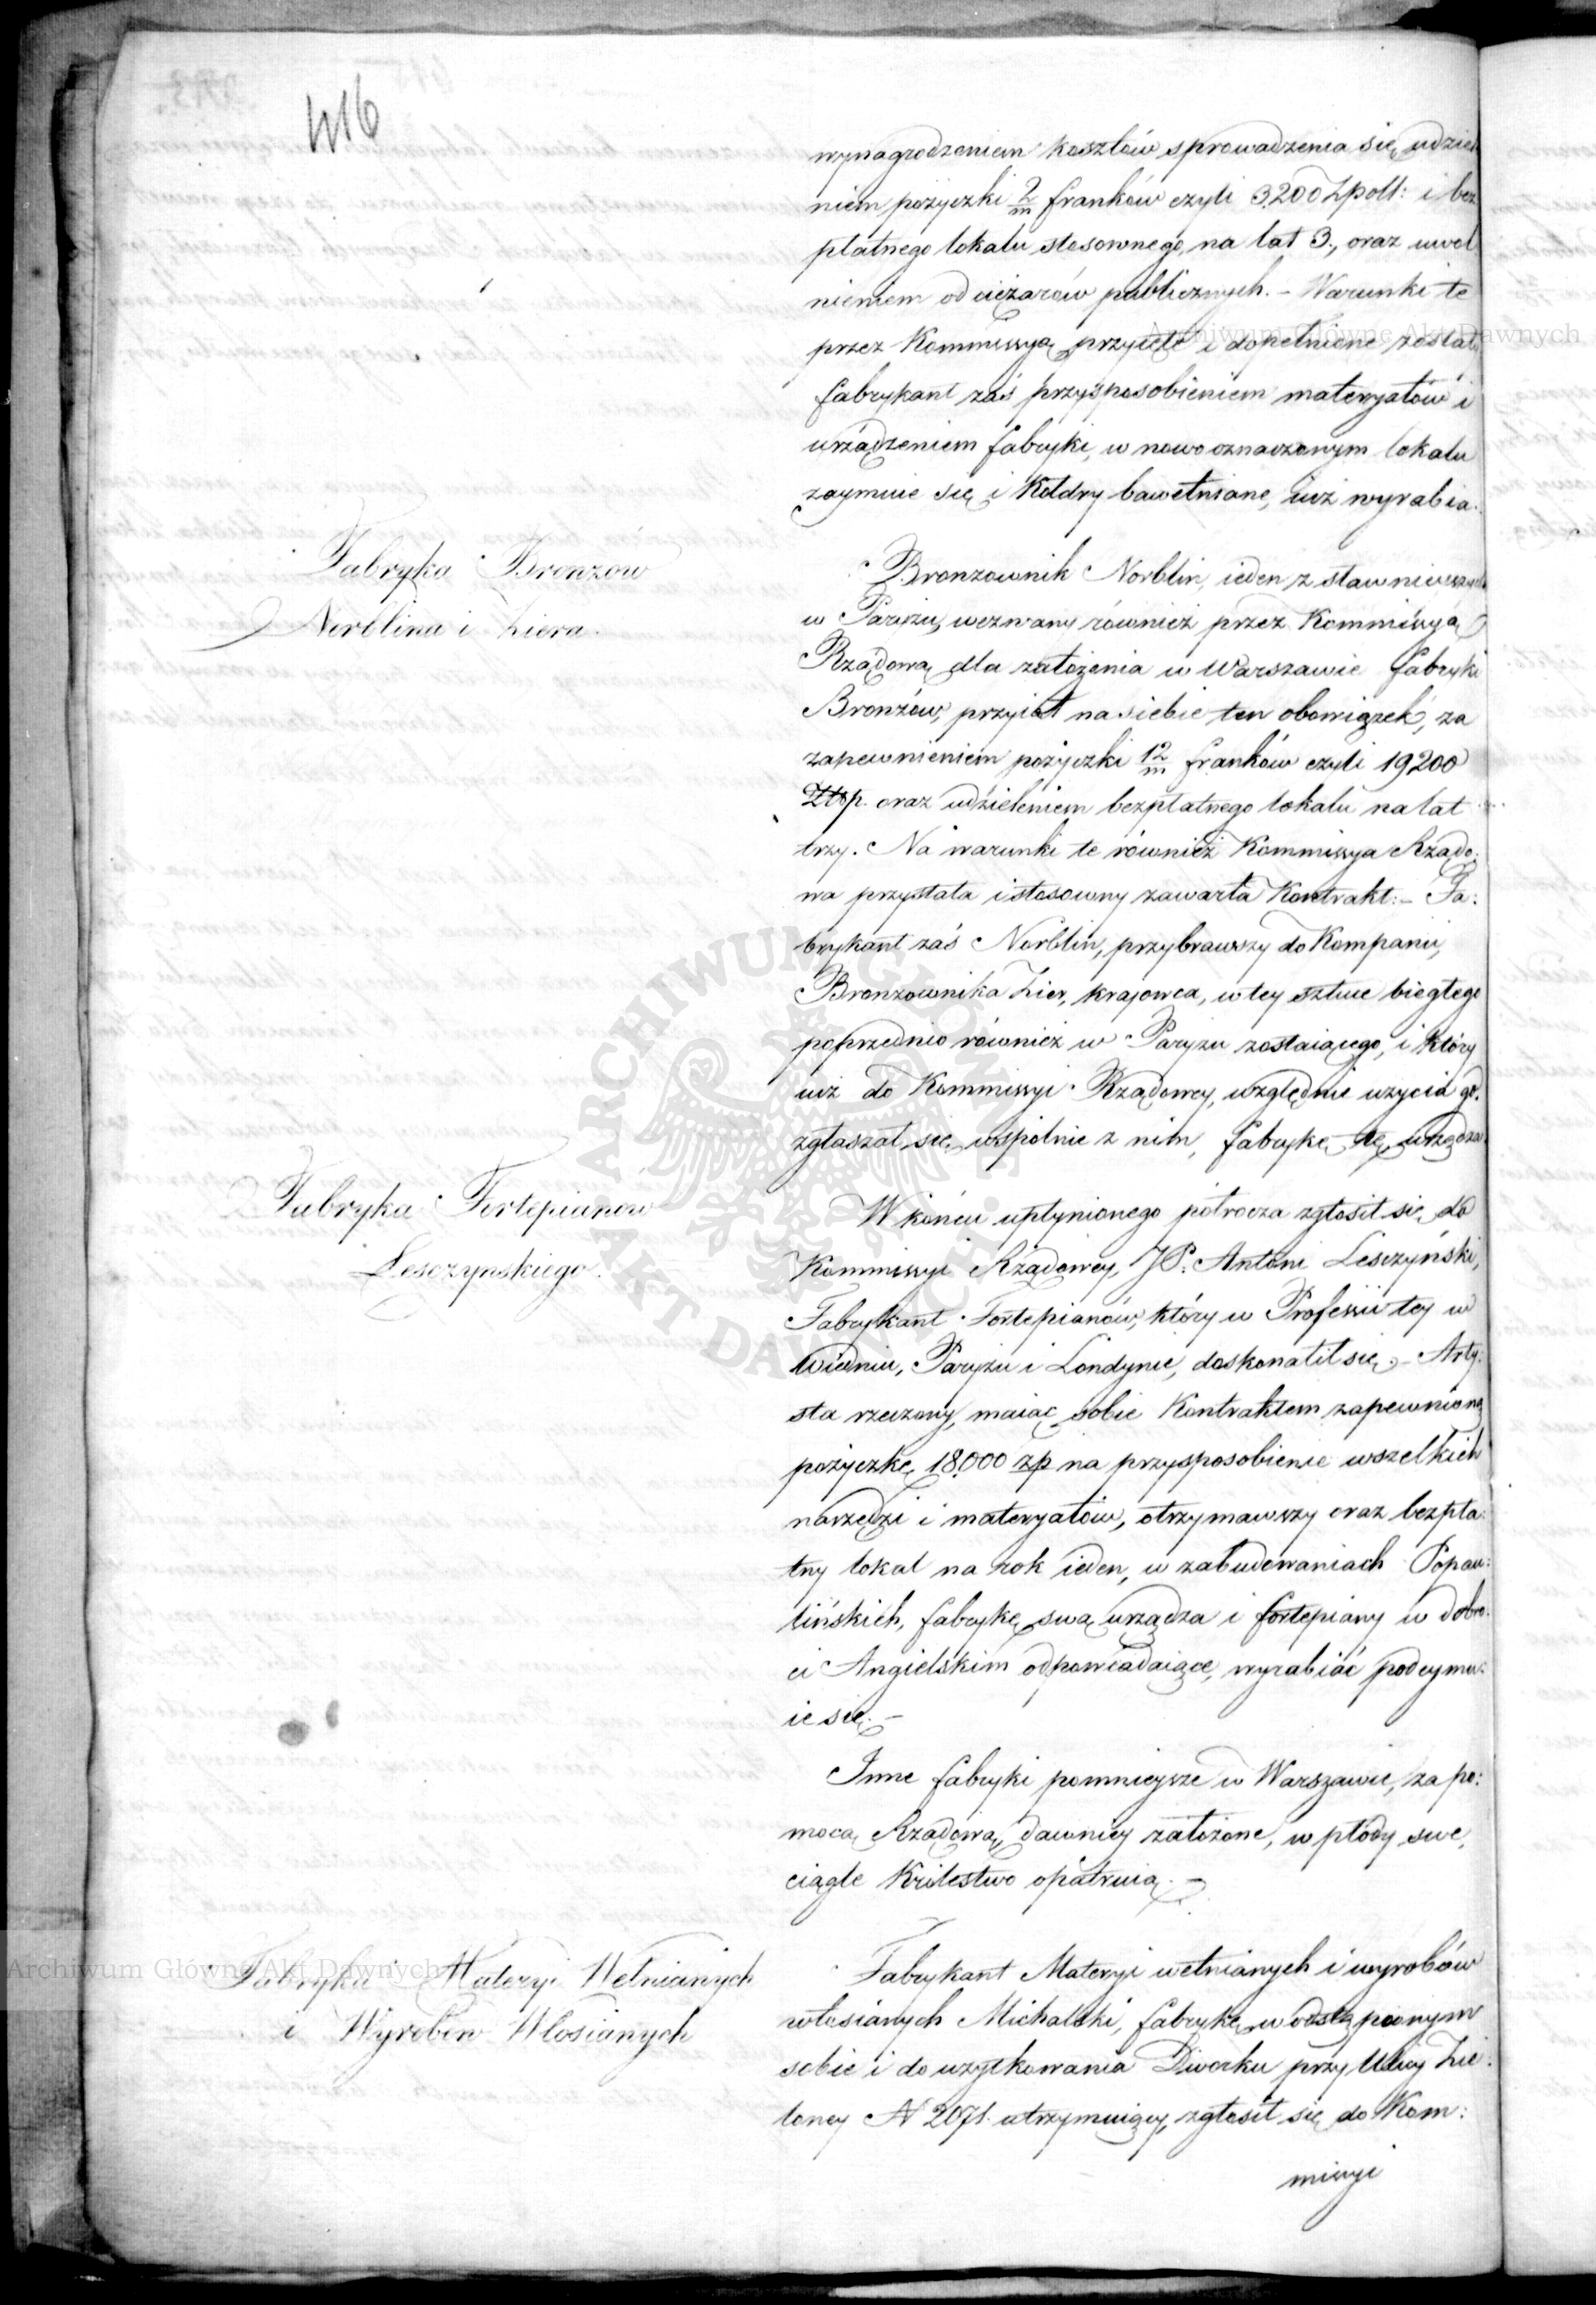 416
wynagrodzeniem kosztów sprowadzenia się, udziele
niem pożyczki 2/m franków czyli 3,200 Zpoll: i bez
płatnego lokalu stosownego, na lat 3., oraz uwol
nieniem od ciężarów publicznych. – Warunki te
przez Kommissyą przyięte i dopełnione został
fabrykant zaś przysposobieniem materyałów i
urządzeniem fabryki, w nowo oznaczonym lokalu
zaymuie się i Kołdry bawełniane, iuż wyrabia.
Fabryka Bronzow
Norblina i Ziera.
Bronzownik Norblin, ieden z sławnieyszych
w Paryżu, wezwany również przez Kommissyą
Rządową dla założenia w Warszawie fabryki
Bronzów, przyiął na siebie ten obowiązek, za
zapewnieniem pożyczki 12/m franków czyli 19200
Złtp. oraz udzieleniem bezpłatnego lokalu na lat
trzy. Na warunki te również Kommissya Rządo:
wa przystała i stosowny zawarła Kontrakt. – Fa:
brykant zaś Norblin, przybrawszy do Kompanii,
Bronzownika Zier, krajowca, w tey sztuce biegłego
poprzednio również w Paryżu zostaiącego, i który
iuż do Kommissyi Rządowey, względnie użycia go.
zgłaszał się, wspólnie z nim, fabrykę tę urządza.
Fabryka Fortepianow
Lesczynskiego.
W końcu upłynionego półrocza zgłosił się do
Kommissyi Rządowey, JP. Antoni Lesczyński,
Fabrykant Fortepianów, który w Professii tey w
Wiedniu, Paryżu i Londynie, doskonalił się. – Arty:
sta rzeczony, maiąc sobie Kontraktem zapewnioną
pożyczkę 18,000 zp na przysposobienie wszelkich
narzędzi i materyałów, otrzymawszy oraz bezpła:
tny lokal na rok ieden, w zabudowaniach Popau:
lińskich, fabrykę swą urządza i fortepiany w dobro:
ci Angielskim odpowiadaiące, wyrabiać podeymu:
ie się. –
Inne fabryki pomnieysze w Warszawie, za po:
mocą Rządową dawniey założone, w płody swe,
ciągle Królestwo opatruią. –
Fabryka Materyi Wełnianych
i Wyrobow Włosianych
Fabrykant Materyi wełnianych i wyrobów
włosianych Michalski, fabrykę w odstąpionym
sobie i do użytkowania Dworku przy Ulicy Zie:
loney N 2071. utrzymuiący, zgłosił się do Kom:
missyi
Archiwum Główne Akt Dawnych
Archiwum Główne Akt Dawnych
ARCHIWUM GŁÓWNE
AKT DAWNYCH